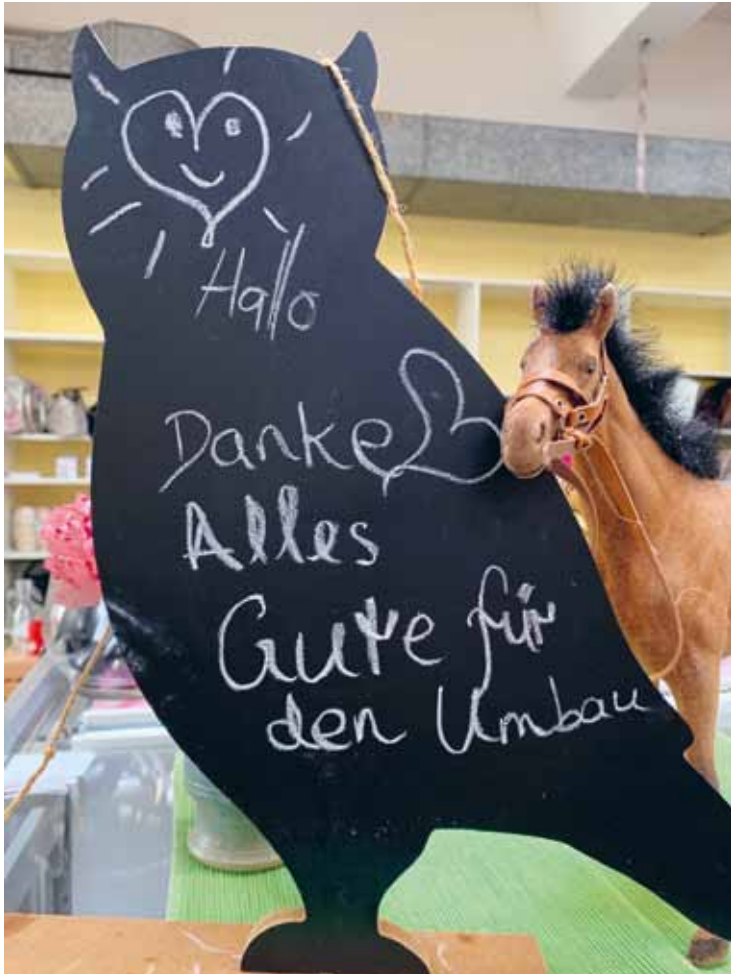 Hallo
Danke
Alles
Gute für
den Umbau